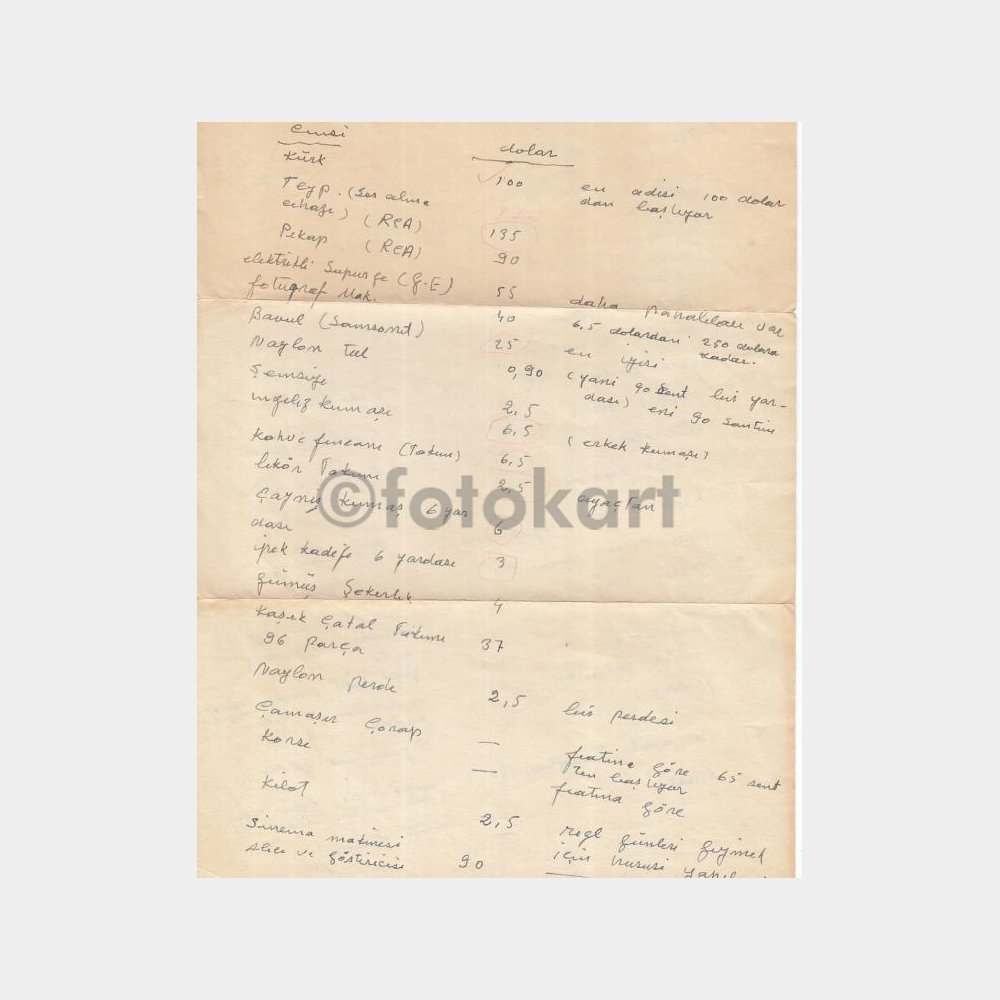 Cinsi dolar
Kürk 100 en adisi 100 dolar
dan başlıyor
Teyp. (Ses alma
cihazı) (RCA) 135
Pikap (RCA) 90
elektrikli Süpürge (G.E) 55
fotuğraf Mak. 40 daha pahalıları var
6,5 dolardan 250 dolara
kadar.
Bavul (Samsonit) 25 en iyisi
Naylon tül 0,90 (yani 90 sent bir yar-
dası) eni 90 santim
Şemsiye 2,5
ingiliz kumaşı 6,5 (erkek kumaşı)
Kahve fincanı (Takım) 6,5
likör Takımı 2,5 ağaçtan
Çayniş kumaş 6 yar
dası 6
ipek kadife 6 yardası 3
gümüş Şekerlik 4
Kaşık Çatal Takımı
96 parça 37
Naylon perde 2,5 bir perdesi
Çamaşır Çorap — fiatına göre 65 sent
ten başlıyor
Korse — fiatına göre
Kilot 2,5 regl günleri giymek
için hususi
Sinema makinesi
alıcı ve göstericisi 90
©fotokart